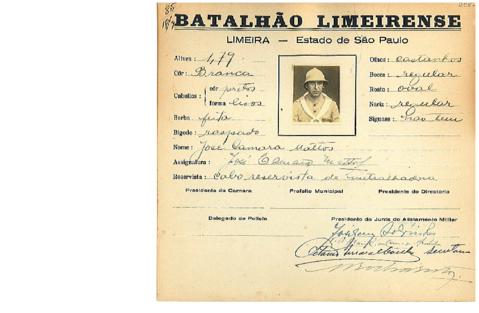 85
BATALHÃO LIMEIRENSE
LIMEIRA — Estado de São Paulo
Altura: 1,79 Olhos: castanhos
Côr: Branca Bocca: regular
Cabellos: côr pretos Rosto: oval
forma lisos Nariz: regular
Barba: feita Signaes: não tem
Bigode: raspado
Nome: José Camara Mattos
Assignatura: José Camara Mattos
Reservista: cabo reservista de
Presidente da Camara Prefeito Municipal Presidente do Directorio
Delegado de Policia Presidente da Junta de Alistamento Militar
secretario